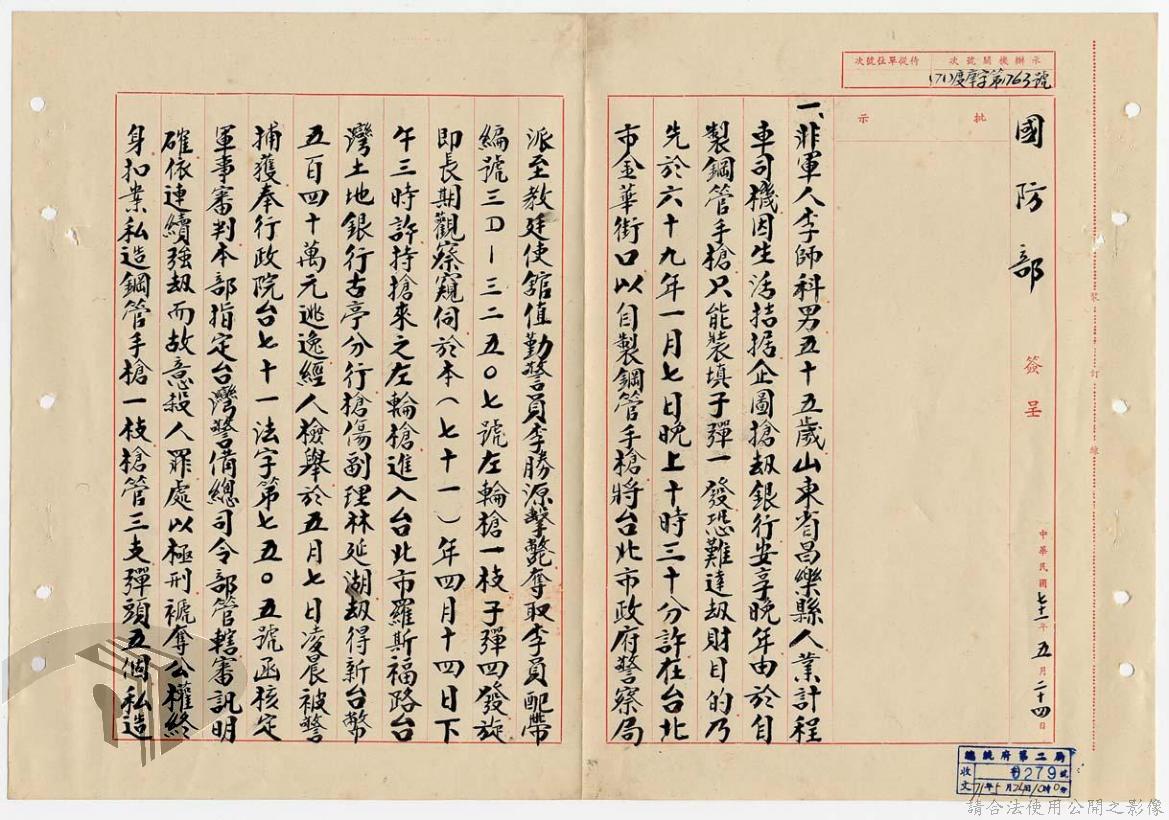 國防部 簽呈
中華民國七十一年五月二十四日
承辦機關號次
侍從單位號次
(71)度庠字第1763號
批示
一、非軍人李師科男五十五歲山東省昌樂縣人業計程
車司機因生活拮据企圖搶刼銀行安享晚年由於自
製鋼管手槍只能裝填子彈一發恐難達刼財目的乃
先於六十九年一月七日晚上十時三十分許在台北
市金華街口以自製鋼管手槍將台北市政府警察局
派至教廷使館值勤警員李勝源擊斃奪取李員配帶
編號三D-三二五0七號左輪槍一枝子彈四發旋
即長期觀察窺伺於本(七十一)年四月十四日下
午三時許持搶來之左輪槍進入台北市羅斯福路台
灣土地銀行古亭分行槍傷副理林延湖刼得新台幣
五百四十萬元逃逸經人檢舉於五月七日凌晨被警
捕獲奉行政院台七十一法字第七五0五號函核定
軍事審判本部指定台灣警備總司令部管轄審訊明
確依連續強刼而故意殺人罪處以極刑褫奪公權終
身扣案私造鋼管手槍一枝槍管三支彈頭五個私造
裝訂線
總統府第二局
收文
0279號
請合法使用公開之影像